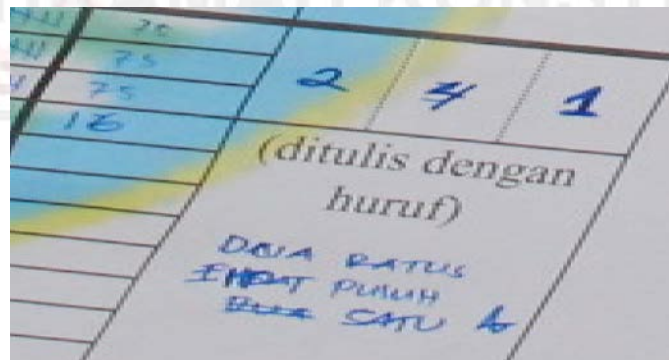 75
75
75
16
2 4 1
(ditulis dengan
huruf)
DUA RATUS
EMPAT PULUH
SATU